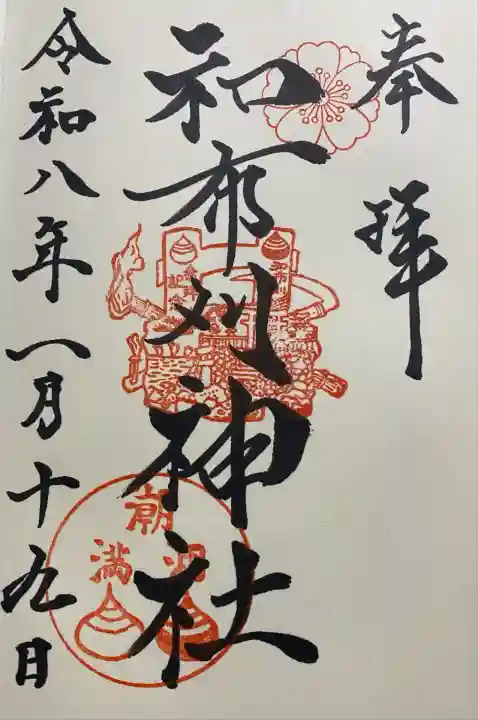 奉拝
和布刈神社
令和八年一月十九日
潮
満